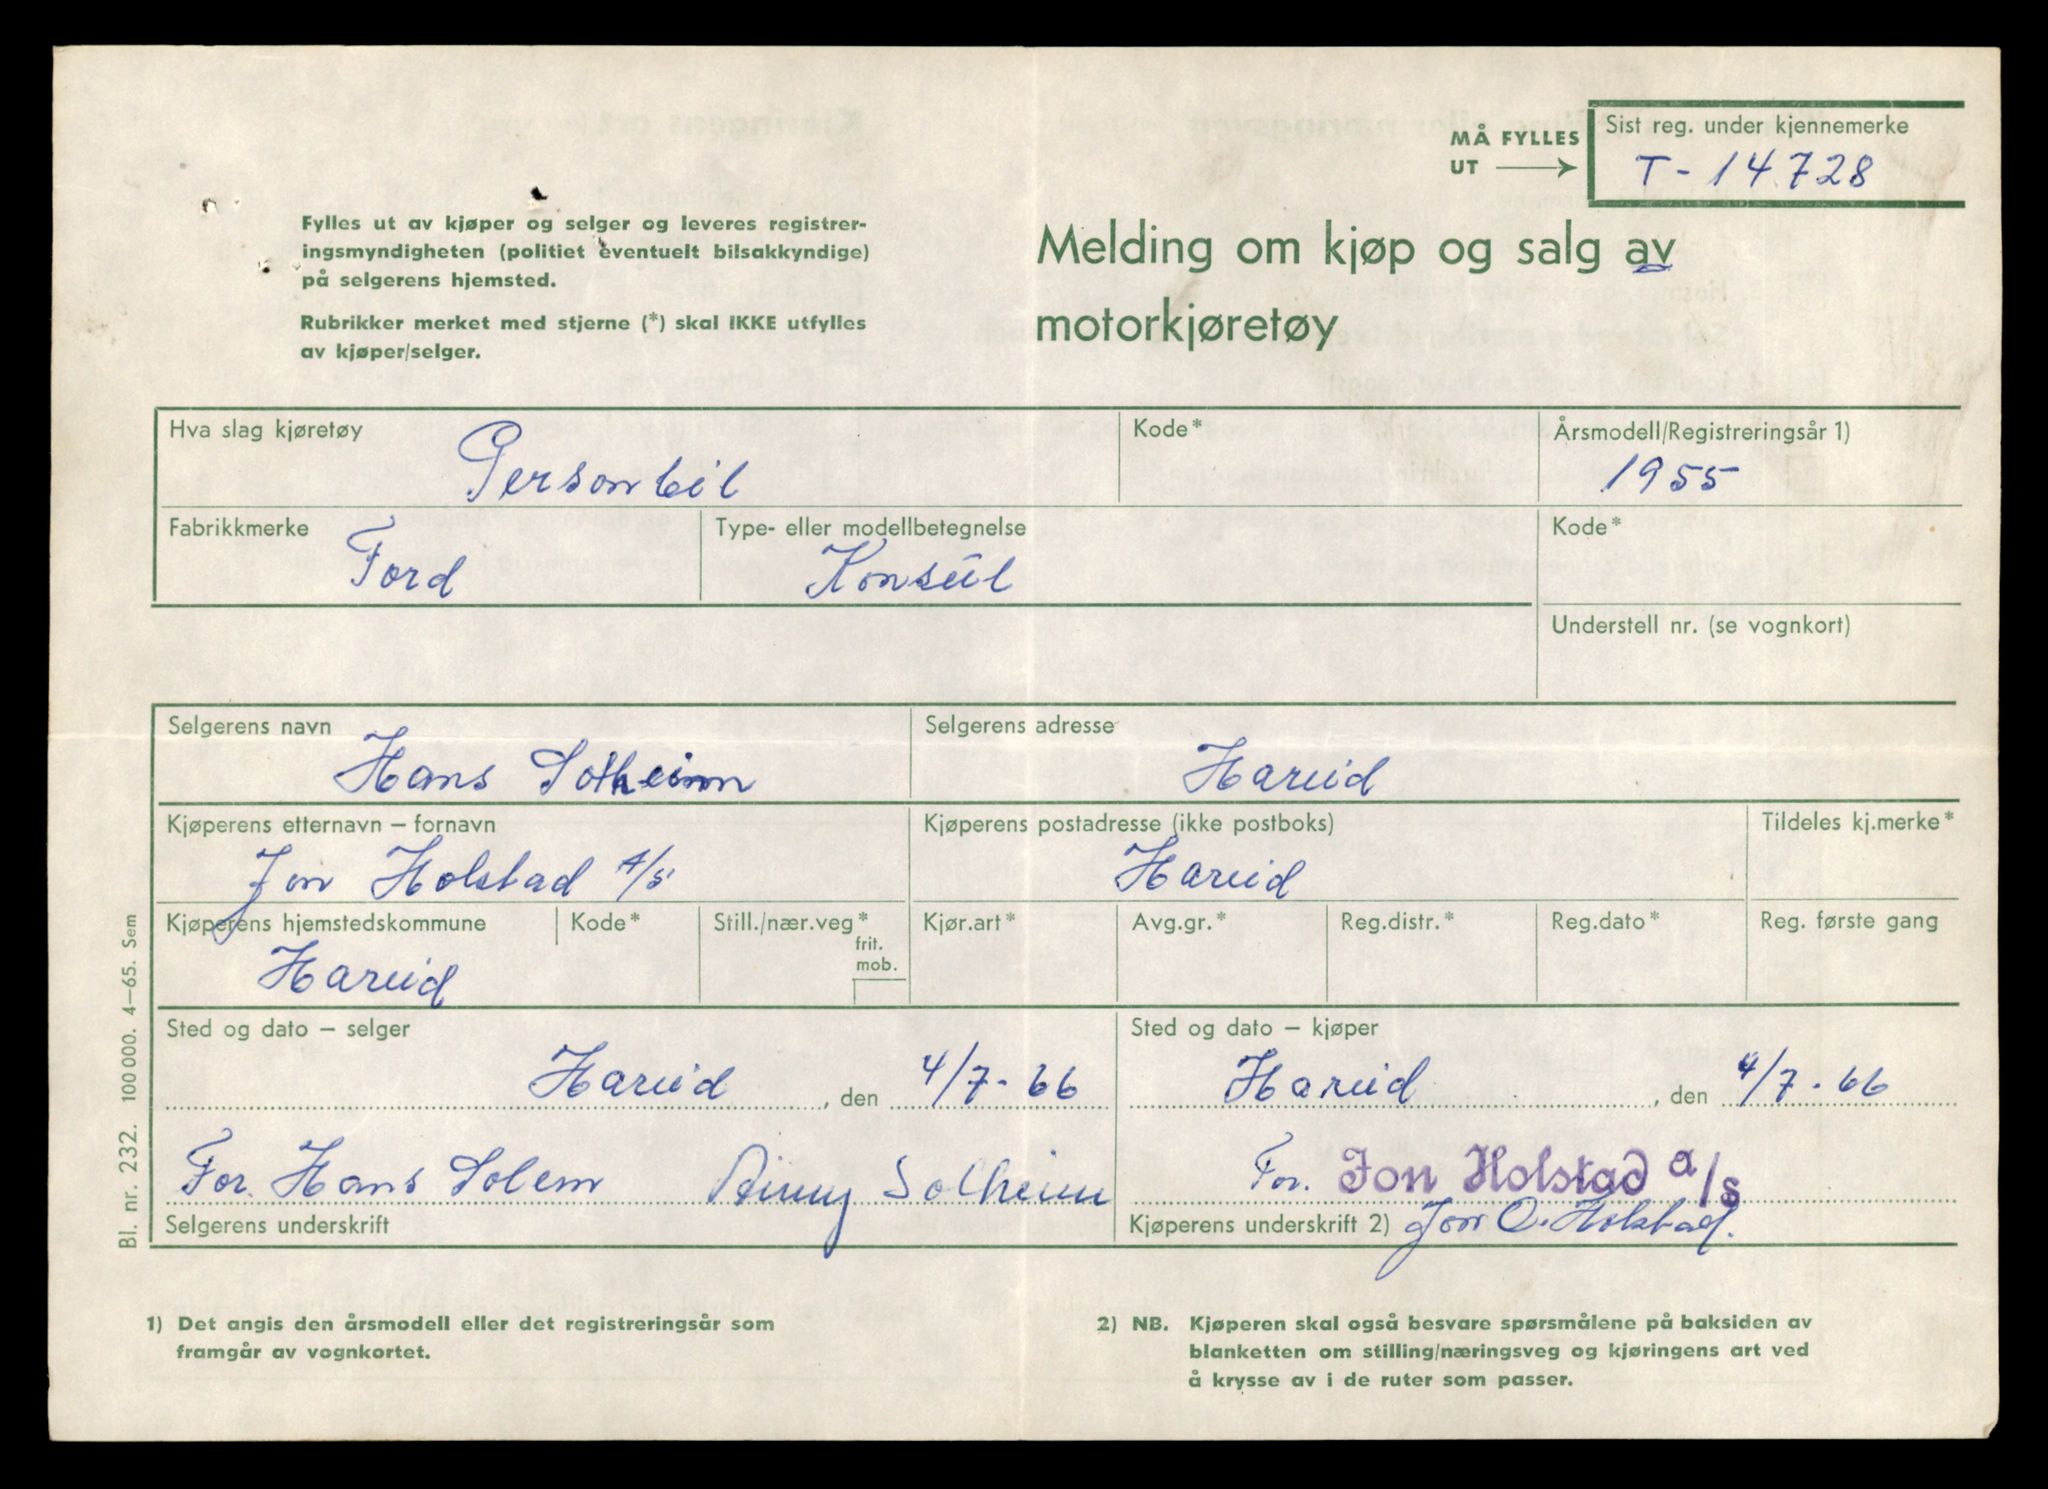 MÅ FYLLES
UT
Sist reg. under kjennemerke
T-14728
Fylles ut av kjøper og selger og leveres registrer-
ingsmyndigheten (politiet eventuelt bilsakkyndige)
på selgerens hjemsted.
Rubrikker merket med stjerne (*) skal IKKE utfylles
av kjøper/selger.
Melding om kjøp og salg av
motorkjøretøy
Hva slag kjøretøy
Personbil
Kode*
Årsmodell/Registreringsår 1)
1955
Fabrikkmerke
Ford
Type- eller modellbetegnelse
Konsul
Kode*
Understell nr. (se vognkort)
Selgerens navn
Hans Solheim
Selgerens adresse
Hareid
Kjøperens etternavn – fornavn
Jon Holstad A/S
Kjøperens postadresse (ikke postboks)
Hareid
Tildeles kj.merke*
Kjøperens hjemstedskommune
Hareid
Kode*
Still./nær.veg*
frit.
mob.
Kjør.art*
Avg.gr.*
Reg.distr.*
Reg.dato*
Reg. første gang
Sted og dato – selger
Hareid, den 4/7-66
Sted og dato – kjøper
Hareid, den 4/7-66
For Hans Solem Solheim
Selgerens underskrift
For. Jon Holstad a/s
Kjøperens underskrift 2) Jon O. Holstad.
Bl. nr. 232. 100 000. 4–65. Sem
1) Det angis den årsmodell eller det registreringsår som
framgår av vognkortet.
2) NB. Kjøperen skal også besvare spørsmålene på baksiden av
blanketten om stilling/næringsveg og kjøringens art ved
å krysse av i de ruter som passer.